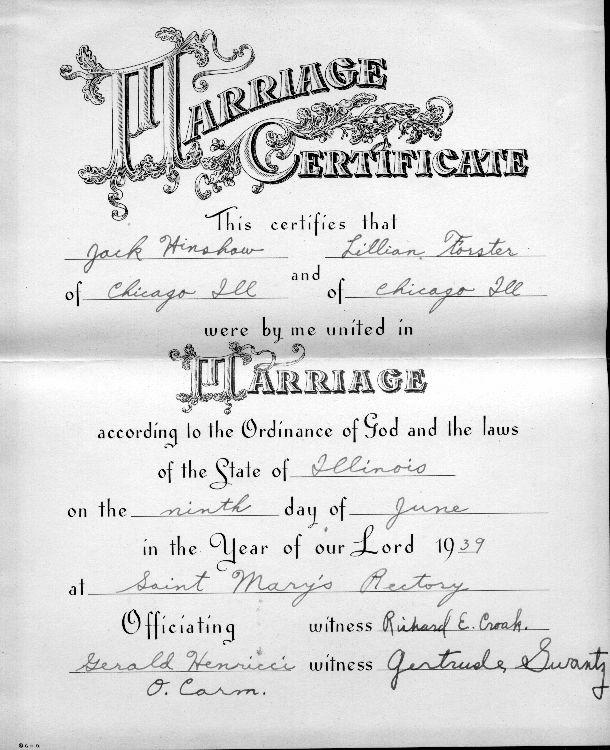 MARRIAGE
CERTIFICATE
This certifies that
Jack Hinshaw Lillian Forster
and
of Chicago Ill of Chicago Ill
were by me united in
MARRIAGE
according to the Ordinance of God and the laws
of the State of Illinois
on the ninth day of June
in the Year of our Lord 1939
at Saint Mary's Rectory
Officiating witness Richard E. Croak.
Gerald Henricci witness Gertrude Swantz
O. Carm.